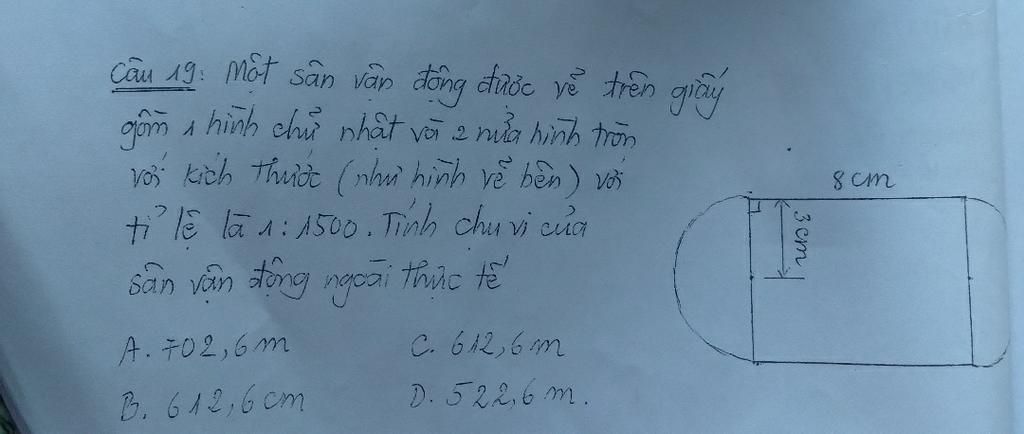 Câu 19: Một sân vận động được vẽ trên giấy
gồm 1 hình chữ nhật và 2 nửa hình tròn
với kích thước (như hình vẽ bên) với
tỉ lệ là 1:1500. Tính chu vi của
sân vận động ngoài thực tế
A. 702,6m
C. 612,6m
B. 612,6cm
D. 522,6m.
8cm
3cm